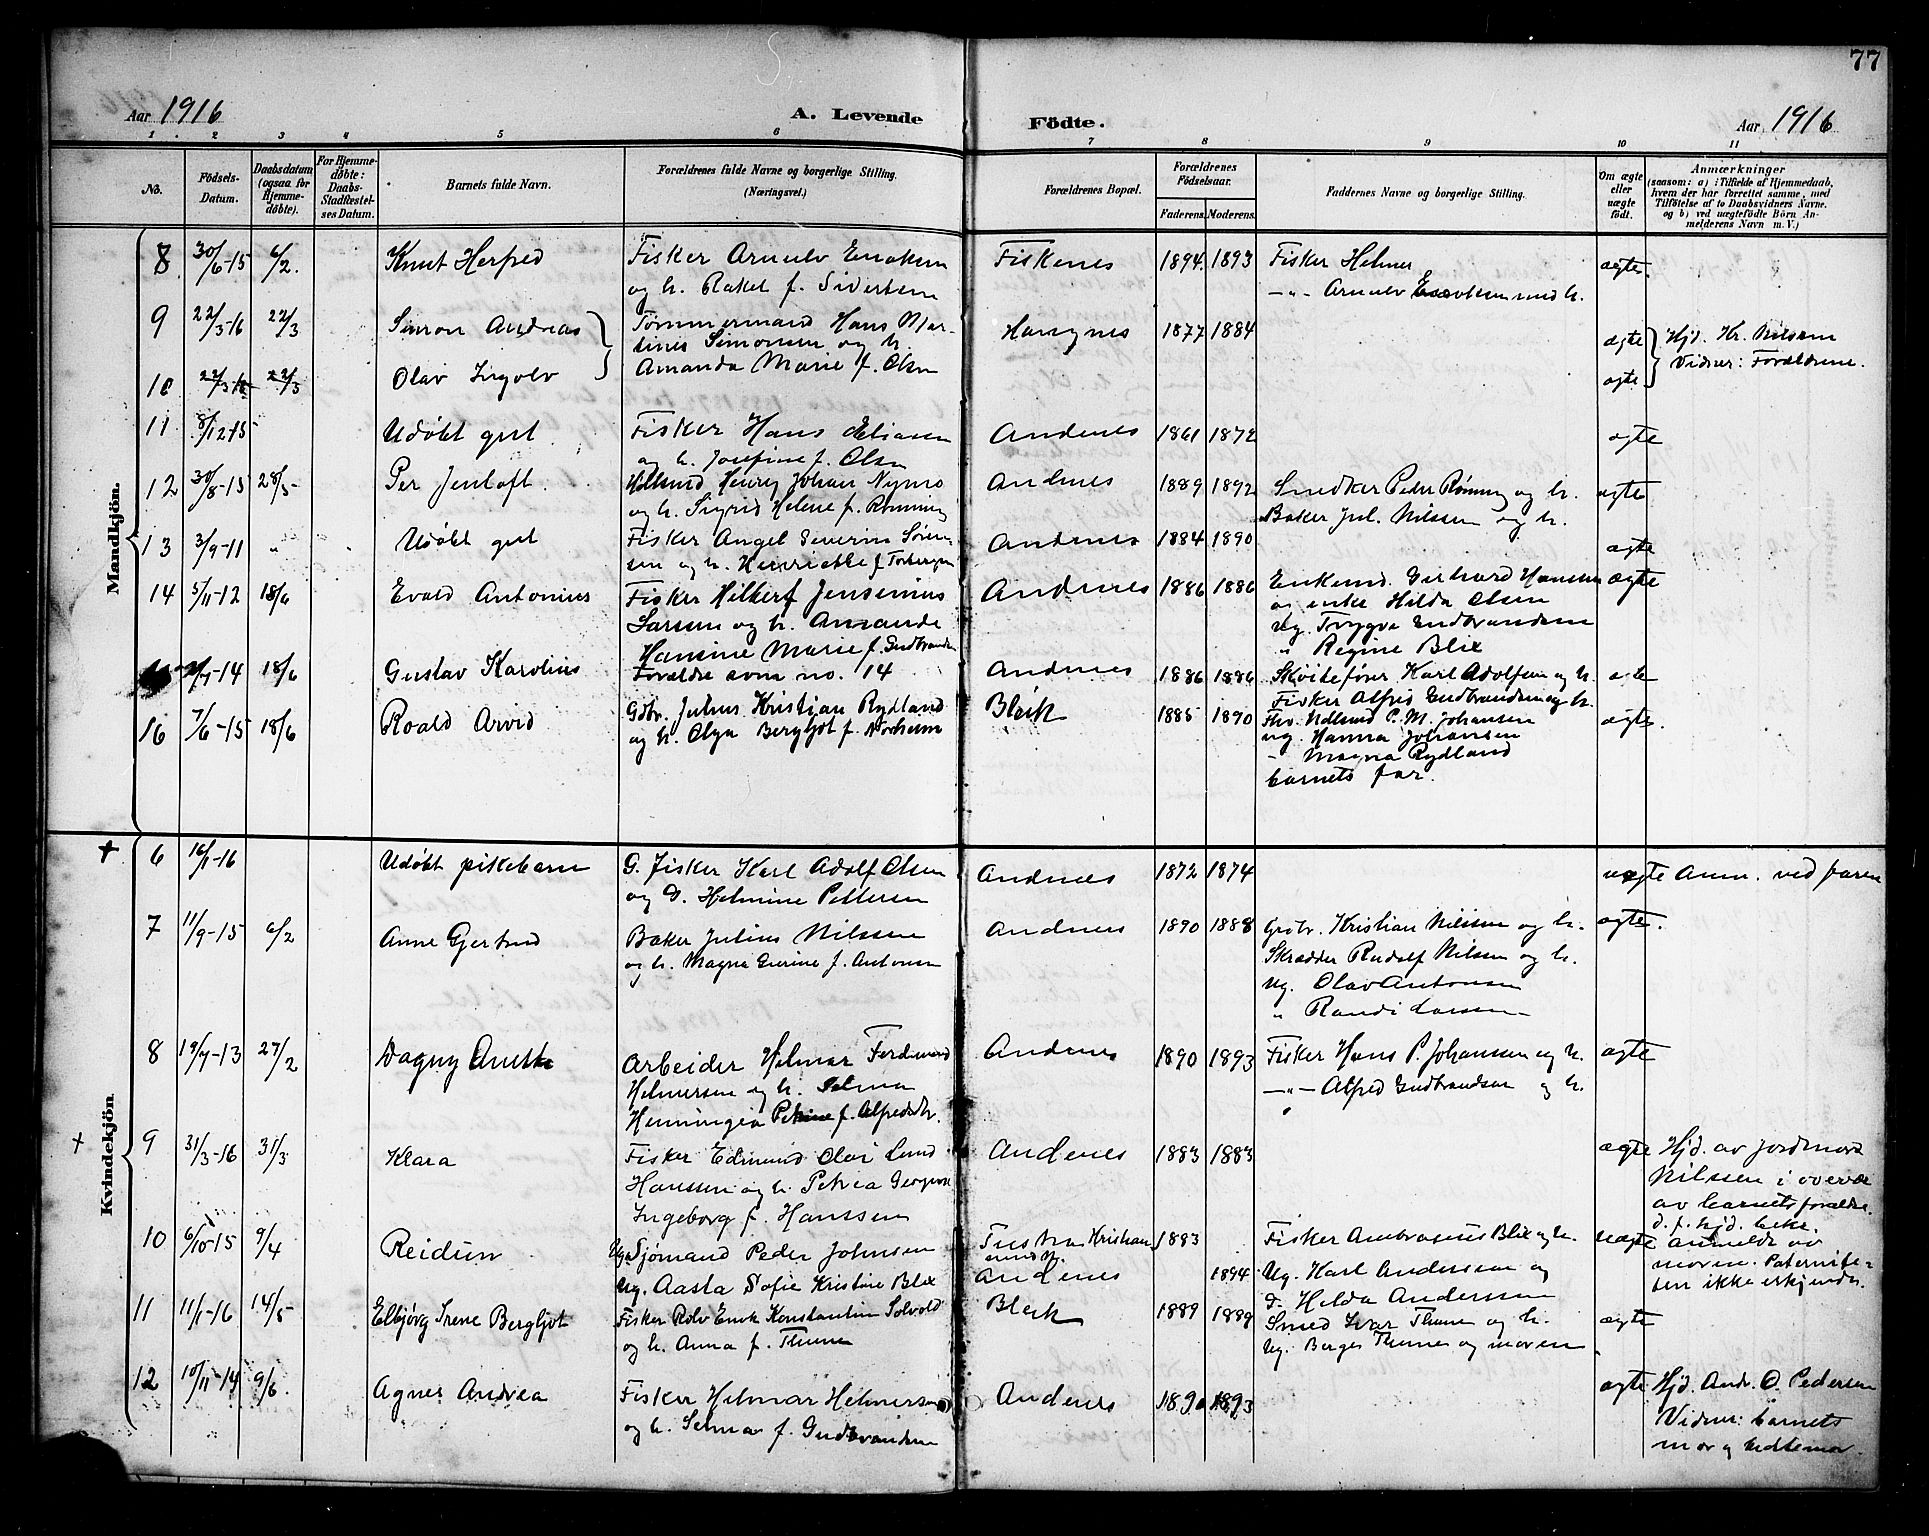 77
Aar 1916
A. Levende
Födte.
Aar 1916
1 2 3 4 5 6 7 8 9 10 11
No.
Födsels-
Datum.
Daabsdatum
(ogsaa for
Hjemme-
döbte).
For Hjemme-
döbte:
Daabs-
Stadfæstel-
ses Datum.
Barnets fulde Navn.
Forældrenes fulde Navne og borgerlige Stilling.
(Næringsvei.)
Forældrenes Bopæl.
Forældrenes
Födselsaar.
Faderens. Moderens.
Faddernes Navne og borgerlige Stilling.
Om ægte
eller
uægte
födt.
Anmærkninger
(saasom: a) i Tilfælde af Hjemmedaab,
hvem der har forrettet samme, med
Tilföielse af to Daabsvidners Navne.
og b) ved uægtefödte Börn An-
melderens Navn m. V.)
Mandkjön.
8. 30/6-15 6/2. Knut Herfred
Fisker Arnulv Enoksen
og h. Rakel f. Sivertsen
Fiskenes 1894. 1893
Fisker Helmer
-"- Arnulv Enoksen med h.
ægte
9 22/3-16 22/3 Simon Andreas
Tømmermand Hans Mar-
tines Simonsen og h.
Amanda Marie f. Olsen
1877 1884
ægte
Hjd. Kr. Nilsen
Vidner: Forældrene.
10 22/3-16 22/3 Olav Ingolv
ægte
11 8/12-15 Udøbt gut.
Fisker Hans Eliasen
og h. Josefine f. Olsen
Andenes 1861 1872
ægte
12 30/8-15 28/5 Per Jentoft.
Henry Johan Nymo
og h. Sigrid Helene f. Rønning
Andenes 1889 1892
Smed Peder Rønning og h.
Baker Jul. Nilssen og h.
ægte
13 3/9-11 " Udøbt gut
Fisker Angel Severin Søren-
sen og h. Henriette f. Torbergsen
Andenes 1884 1890
ægte
14 5/11-12 18/6 Evald Antonius
Fisker Hilbert Jensenius
Larsen og h. Amanda
Hansine Marie f. Gudbrandsen
Andenes 1886 1886
Enkemd. Gerhard Hansen
og enke Hilda Olsen
Ug. Trygve Gudbrandsen
" Regine Blix
ægte
/7-14 18/6 Gustav Karolius
Forældre som no. 14
Andenes 1886 1886
Skøitefører Karl Adolfsen og h.
Fisker Alfred Gudbrandsen og h.
ægte
16 7/6-15 18/6 Roald Arvid
Gdbr. Julius Kristian Rydland
og h. Olga Bergljot f. Norheim
Bleik 1885 1890
P. M. Johansen
ug. Hanna Johansen
- Magna Rydland
barnets far.
ægte.
Kvindekjön.
+ 6 16/1-16 Udøbt pikebarn
G. fisker Karl Adolf Olsen
og D. Helmine Pettersen
Andenes 1872 1874
uægte Anm. ved faren
7 11/9-15 6/2 Anne Gjertrud
Baker Julius Nilssen
og h. Magna Gurine f. Antonsen
Andenes 1890 1888
Grdbr. Kristian Nilssen og h.
Skrædder Rudolf Nilssen og h.
Ug. Olav Antonsen
" Randi Larsen
ægte.
8 19/7-13 27/2 Dagny Anette
Arbeider Helmar Ferdinand
Helmersen og h. Selma
Henningea Petrine f. Alfredsdtr.
Andenes 1890 1893
Fisker Hans P. Johansen og h.
-"- Alfred Gudbrandsen og h.
ægte
+ 9 31/3-16 31/3 Klara
Fisker Edmund Olai Lund
Hanssen og h. Petrea Georgine
Ingeborg f. Hanssen
Andenes 1883 1883
ægte
Hjd. av Jordmor
Nilssen i overvær
av barnets forældre.
d. f. hjd. bekr.
10 6/10-15 9/4 Reidun
Ug. Sjømand Peder Johnsen
Ug. Aasta Sofie Kristine Blix
Tustna Kristian-
sund N.
Andenes
1883
1894
Fisker Ambrosius Blix og h.
Ug. Karl Andersen og
D. Helda Andersen
uægte
anmeldt av
moren. Paternite-
ten ikke erkjendt.
11 11/1-16 14/5 Elbjørg Irene Bergljot
Fisker Rolv Enok Konstantin Solvold
og h. Anna f. Thune
Bleik 1889 1889
Smed Ivar Thune og h.
Ug. Borges Thune og moren.
ægte
12 10/11-14 9/6. Agnes Andrea
Fisker Helmar Helmersen
og h. Selma f. Gudbrandsen
Andenes 1890 1893
ægte
Hjd. Andr. O. Pedersen
Vidner: barnets
mor og bedstemor.